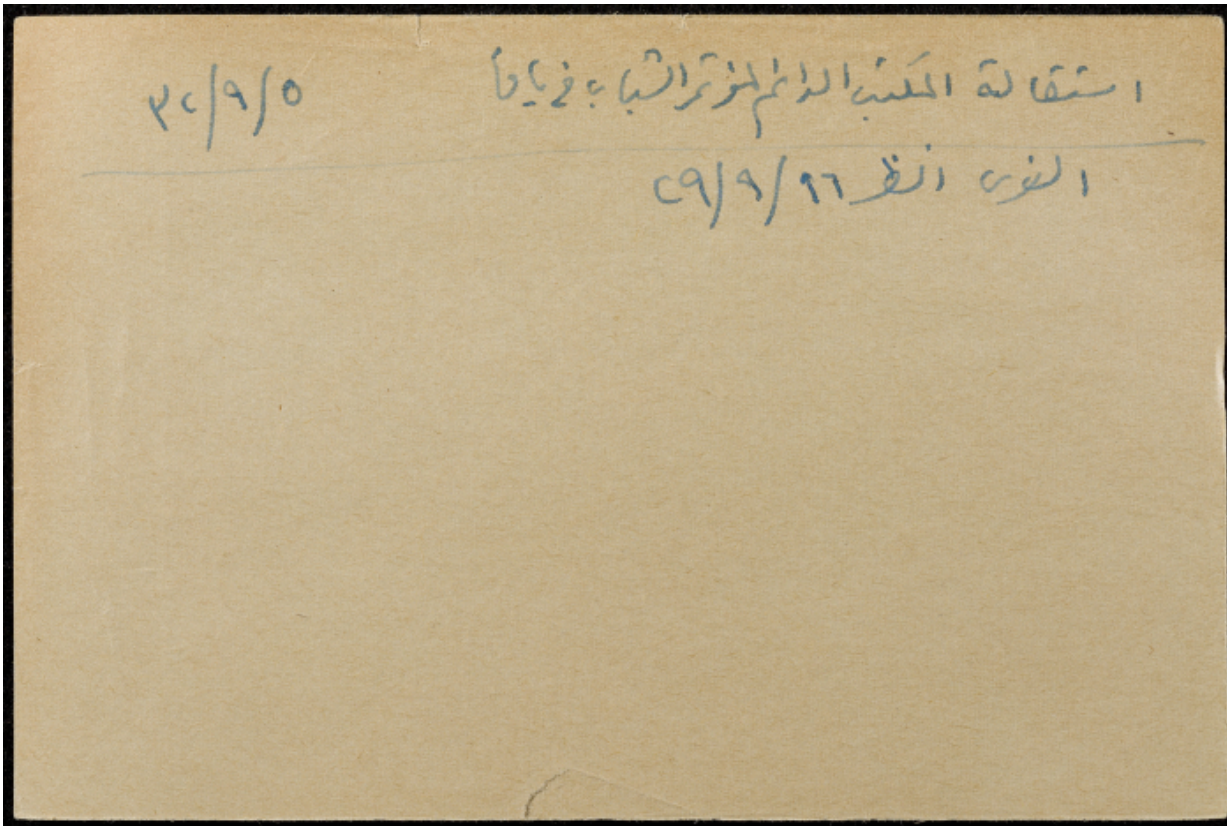 استقالة المكتب الدائم لمؤتمر الشباب في يافا ٣٢/٩/٥
انظر ٢٩/٩/١٦